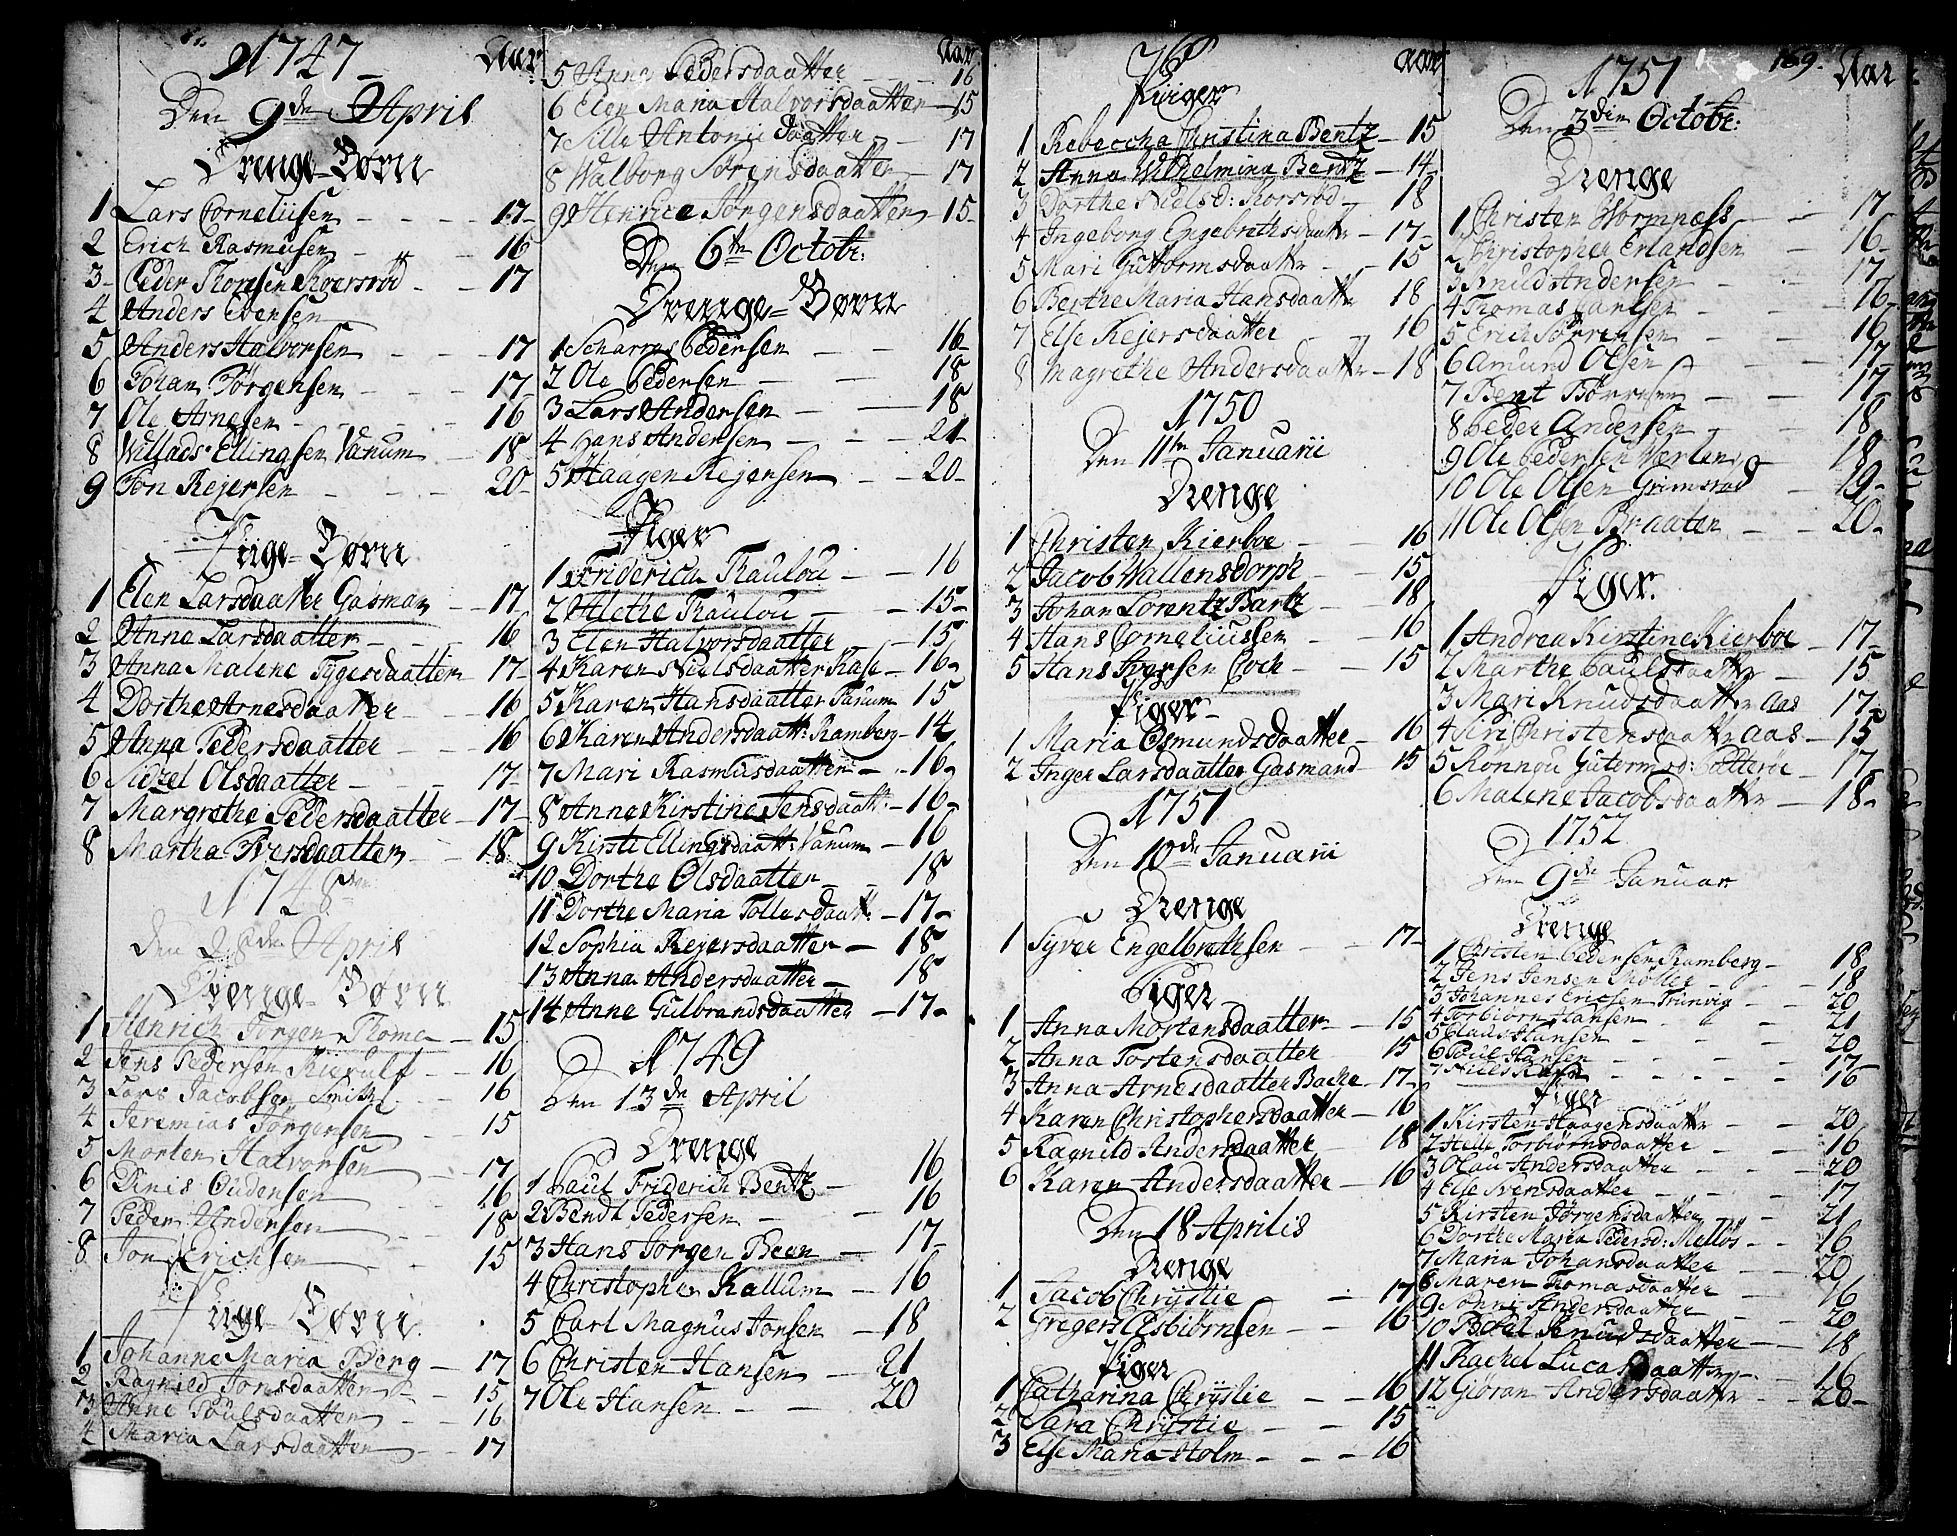 1747 Aar
Den 9de April
Drenge-Børn
1 Lars Corneliusen - - - 17-
2 Erich Rasmusen - - 16
3- Peder Thorsen Skorsrød - - 17
4 Anders Evensen
5 Anders Halvorsen - - - 17
6 Johan Jörgensen - - - 17
7 Ole Arnesen - - - 16
8 Willads Ellingsen Vanum - 18
9 Jon Rejersen - - - 20-
Pige-Børn
1 Elen Larsdaatter Gasman - 17
2 Anne Larsdaatter - - 16
3 Anna Malene Tygesdaatter 17-
4 Dorthe Arnesdaatter - - 16
5 Anna Pedersdaatter - - 16
6 Sidzel Olsdaatter - - - 17-
7 Margrethe Pedersdaatter - 17-
8 Martha Iversdaatter - - 18
1748
Den 28de April
Drenge-Børn
1 Henrich Jørgen Thoma - 15
2 Jens Pedersen Kierulf - - 16
3 Lars Jacobsen Smith - - 16
4 Jeremias Jörgensen - 15
5 Morten Halvorsen - 17
6 Dinis Oudensen - 16
7 Peder Andersen - 18
8 Jon Erichsen - - 15
Pige-Børn
1 Johanne Maria Berg - 17
2 Ragnild Jonsdaatter - 15
3 Anne Poulsdaatter - - 16
4 Maria Larsdaatter - - 17
Aar
5 Anna Pedersdaatter - - 16
6 Elen Maria Halvorsdaatter - 15
7 Sille Antonii daatter - 17
8 Walborg Sörensdaatter - 17
9 Henrice Jörgensdaatter - 15-
Den 6te Octobr:
Drenge-Børn
1 Pedersen - - 16
2 Ole Pedersen - - 18
3 Lars Andersen - - 18
4 Hans Andersen - - - 21
5 Haagen Rejersen - - 20-
Piger
1 Friderica Thaulou - - 16
2 Alethe Thaulou - - 15-
3 Elen Halvorsdaatter - 15
4 Karen Nielsdaatter Kase - 16-
5 Karen Hansdaatter Tanum 15
6 Karen Andersdaatt: Ramberg - 14
7 Mari Rasmusdaatter - - 16-
8 Anne Kirstine Jensdaatt: - 16-
9 Kirsti Ellingsdaatt: Vanum - 16
10 Dorthe Olsdaatter - - 18
11 Dorthe Maria Tollesdaatt: - 17-
12 Sophia Rejersdaatter - 18
13 Anna Andersdaatter - 18
14 Anne Gulbrandsdaatter - 17-
1749
Den 13de April
Drenge
1 Paul Friderich Bentz - 16
2 Bendt Pedersen - - 16
3 Hans Jörgen Been - 17-
4 Christopher Kallum - 16
5 Carl Magnus Jonsen - 18
6 Christen Hansen - 21
7 Ole Hansen - - 20
Aar
Piiger
1 Rebeccha Christina Bentz - 15
2 Anna Wilhelmina Bentz - 14
3 Dorthe Nielsd: Skorsrød - 18
4 Ingeborg Engebrethsdaatter - 17-
5 Mari Guttormsdaatter - 15
6 Berthe Maria Hansdaatter 18
7 Else Rejersdaatter - - 16
8 Magrethe Andersdaatter - 18
1750
Den 11te Januarii
Drenge
1 Christen Kierboe - - 16
2 Jacob Wallensdorph - 15
3 Johan Lorentz Bartz - - 18
4 Hans Corneliussen - 16
5 Hans Iversen Cock - - 15
Piger
1 Maria Osmundsdaatter - 16
2 Inger Larsdaatter Gasmand - 15
1751
Den 10de Januarii
Drenge
1 Syver Engelbrethsen - - 17-
Piger
1 Anna Mortensdaatter - 15
2 Anna Tortensdaatter - 15
3 Anna Arnesdaatter Backe - 17-
4 Karen Christophersdaatter - 16
5 Ragnild Andersdaatter - 18
6 Karen Andersdaatter - 16
Den 18 Aprilis
Drenge
1 Jacob Chrÿstie - - 17-
2 Gregers Asbiörnsen - - 16
Piger
1 Catharina Chrÿstie - - 16
2 Sara Chrÿstie - - 15
3 Else Maria Holm - - - 16
169. Aar
1751
Den 3die Octobr:
Drenge
1 Christen Wormnæss - - 17
2 Christopher Erlandsen - 16-
3 Knud Andersen - - 17
4 Thomas Carlsen - - 16-
5 Erich Sörrensen - - 16
6 Amund Olsen - - 17
7 Bent Börresen - - 17
8 Peder Andersen - - 18
9 Ole Pedersen Verland - 18
10 Ole Olsen Grimsrud - 19-
11 Ole Olsen Braaten - - 20-
Piger.
1 Andrea Kirstine Kierboe - 17-
2 Marthe Paulsdaatter - 15
3 Mari Knudsdaatter Aas - 17-
4 Siri Christensdaatter Aas - 15
5 Rönnou Gutormsd: - 17-
6 Malene Jacobsdaatter - 18-
1752
Den 9de Januar
Drenge
1 Christen Pedersen Ramberg - 18
2 Jens Jensen Møller - - 18
3 Johannes Ericsen Trunvig - - 20
4 Torbiörn Hansen - - - 21
5 Clads Hansen - - - 20
6 Poul Hansen - - - 17
7 Niels - - - - 16
Piger
1 Kirsten Haagensdaatter - - 20
2 Helle Torbiørnsdaatter - - 16
3 Olau Andersdaatter - - 20
4 Else Svensdaatter - - - 17
5 Kirsten Jörgensdaatter - - 21
6 Dorthe Maria Pedersd: Melløs - - 16
7 Maria Johansdaatter - - 20
8 Maren Thomasdaatter - - 16
9 Andersdaatter - - 20
10 Bodel Knudsdaatter - - 18
11 Rachel Lucasdaatter - - 16
12 Giöran Andersdaatter - - 20-